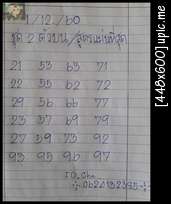 1/12/60
ชุด 2 ตัวบน/สูตรแม่นที่สุด
21 53 63 71
22 55 62 72
29 56 66 77
23 57 69 79
27 59 73 92
93 95 96 97
[448x600] upic.me